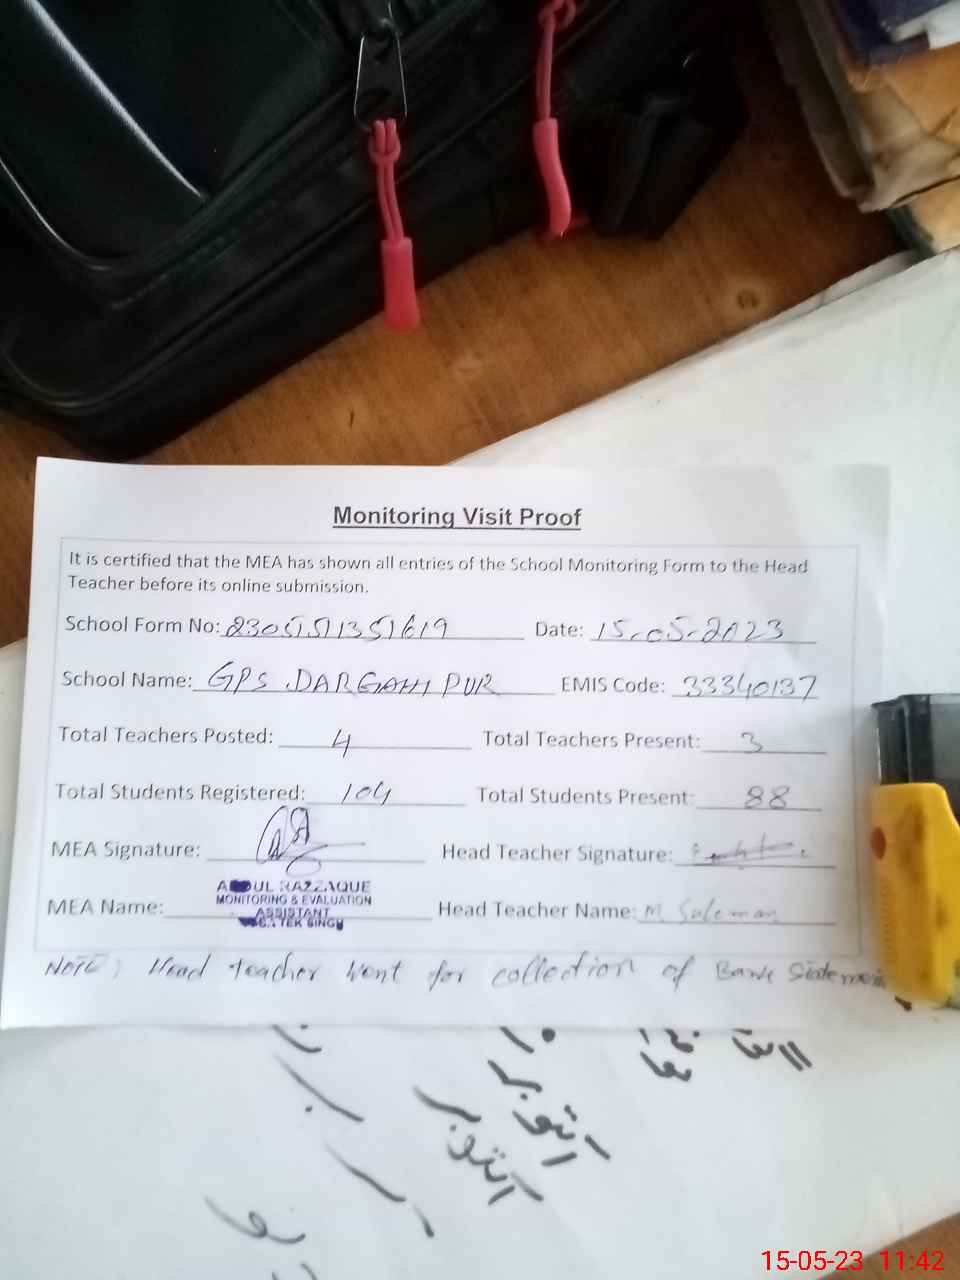 Monitoring Visit Proof
It is certified that the MEA has shown all entries of the School Monitoring Form to the Head
Teacher before its online submission.
School Form No: 2305151351619 Date: 15-05-2023
School Name: GPS DARGAHI PUR EMIS Code: 33340137
Total Teachers Posted: 4 Total Teachers Present: 3
Total Students Registered: 104 Total Students Present: 88
MEA Signature: Head Teacher Signature:
ABDUL RAZZAQUE
MONITORING & EVALUATION
ASSISTANT
TEK SINGH
MEA Name: Head Teacher Name: M Suleman
NOTE; Head teacher Went for collection of Bank Statement
اکتوبر
اکتوبر
15-05-23 11:42